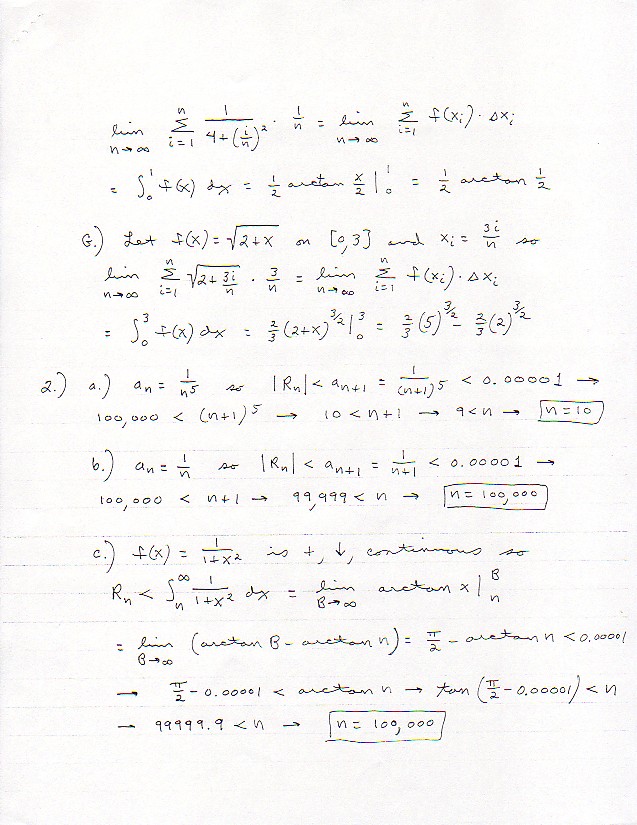 lim n→∞ Σ i=1 n 1/(4+(i/n)²) · 1/n = lim n→∞ Σ i=1 n f(x_i) · Δx_i
= ∫₀¹ f(x) dx = 1/2 arctan x/2 |₀¹ = 1/2 arctan 1/2
G.) Let f(x) = √(2+x) on [0,3] and x_i = 3i/n so
lim n→∞ Σ i=1 n √(2+3i/n) · 3/n = lim n→∞ Σ i=1 n f(x_i) · Δx_i
= ∫₀³ f(x) dx = 2/3 (2+x)^(3/2) |₀³ = 2/3 (5)^(3/2) − 2/3 (2)^(3/2)
2.) a.) a_n = 1/n⁵ so |R_n| < a_{n+1} = 1/(n+1)⁵ < 0.00001 →
100,000 < (n+1)⁵ → 10 < n+1 → 9 < n → n = 10
b.) a_n = 1/n so |R_n| < a_{n+1} = 1/(n+1) < 0.00001 →
100,000 < n+1 → 99,999 < n → n = 100,000
c.) f(x) = 1/(1+x²) is +, ↓, continuous so
R_n < ∫_n^∞ 1/(1+x²) dx = lim B→∞ arctan x |_n^B
= lim B→∞ (arctan B − arctan n) = π/2 − arctan n < 0.00001
→ π/2 − 0.00001 < arctan n → tan(π/2 − 0.00001) < n
→ 99999.9 < n → n = 100,000